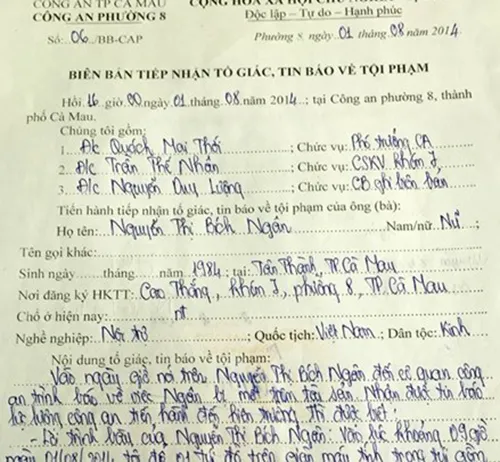 CÔNG AN TP CÀ MAU
CÔNG AN PHƯỜNG 8
Số: 06../BB-CAP
CỘNG HÒA XÃ HỘI CHỦ NGHĨA
Độc lập – Tự do – Hạnh phúc
Phường 8, ngày 01 tháng 08 năm 2014.
BIÊN BẢN TIẾP NHẬN TỐ GIÁC, TIN BÁO VỀ TỘI PHẠM
Hồi 16 giờ 00 ngày 01 tháng 08 năm 2014; tại Công an phường 8, thành
phố Cà Mau.
Chúng tôi gồm:
1. Đ/c Quách Mai Thới; Chức vụ: Phó trưởng CA
2. Đ/c Trần Thế Nhân; Chức vụ: CSKV khóm 7,
3. Đ/c Nguyễn Duy Lượng; Chức vụ: CB ghi biên bản
Tiến hành tiếp nhận tố giác, tin báo về tội phạm của ông (bà):
Họ tên: Nguyễn Thị Bích Ngân Nam/nữ: Nữ ;
Tên gọi khác:
Sinh ngày......tháng......năm 1984; tại: Tân Thành, TP. Cà Mau
Nơi đăng ký HKTT: Cao Thắng, khóm 7, phường 8, TP. Cà Mau
Chỗ ở hiện nay: nt
Nghề nghiệp: Nội trợ ; Quốc tịch: Việt Nam ; Dân tộc: Kinh
Nội dung tố giác, tin báo về tội phạm:
Vào ngày giờ nói trên Nguyễn Thị Bích Ngân đến cơ quan công
an trình báo về việc Ngân bị mất trộm tài sản. Nhận được tin báo
lực lượng công an tiến hành đến hiện trường thì được biết:
- Lời trình bày của Nguyễn Thị Bích Ngân: Vào lúc khoảng 09 giờ
ngày 01/08/2014 tôi để 01 túi đồ trên giàn máy tính trong tủ gồm